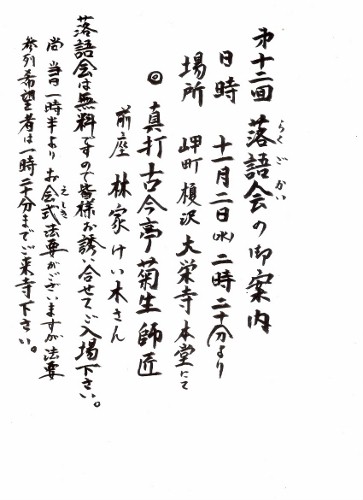 第十二回 落語会の御案内
らくごかい
日時 十一月二日(水)二時二十分より
場所 岬町榎沢 大栄寺本堂にて
◎ 真打 古今亭菊生師匠
前座 林家けい木さん
落語会は無料ですので皆様お誘い合せてご入場下さい。
尚当日一時半よりお会式法要がございますが法要
えしき
参列希望者は一時二十分までご来寺下さい。